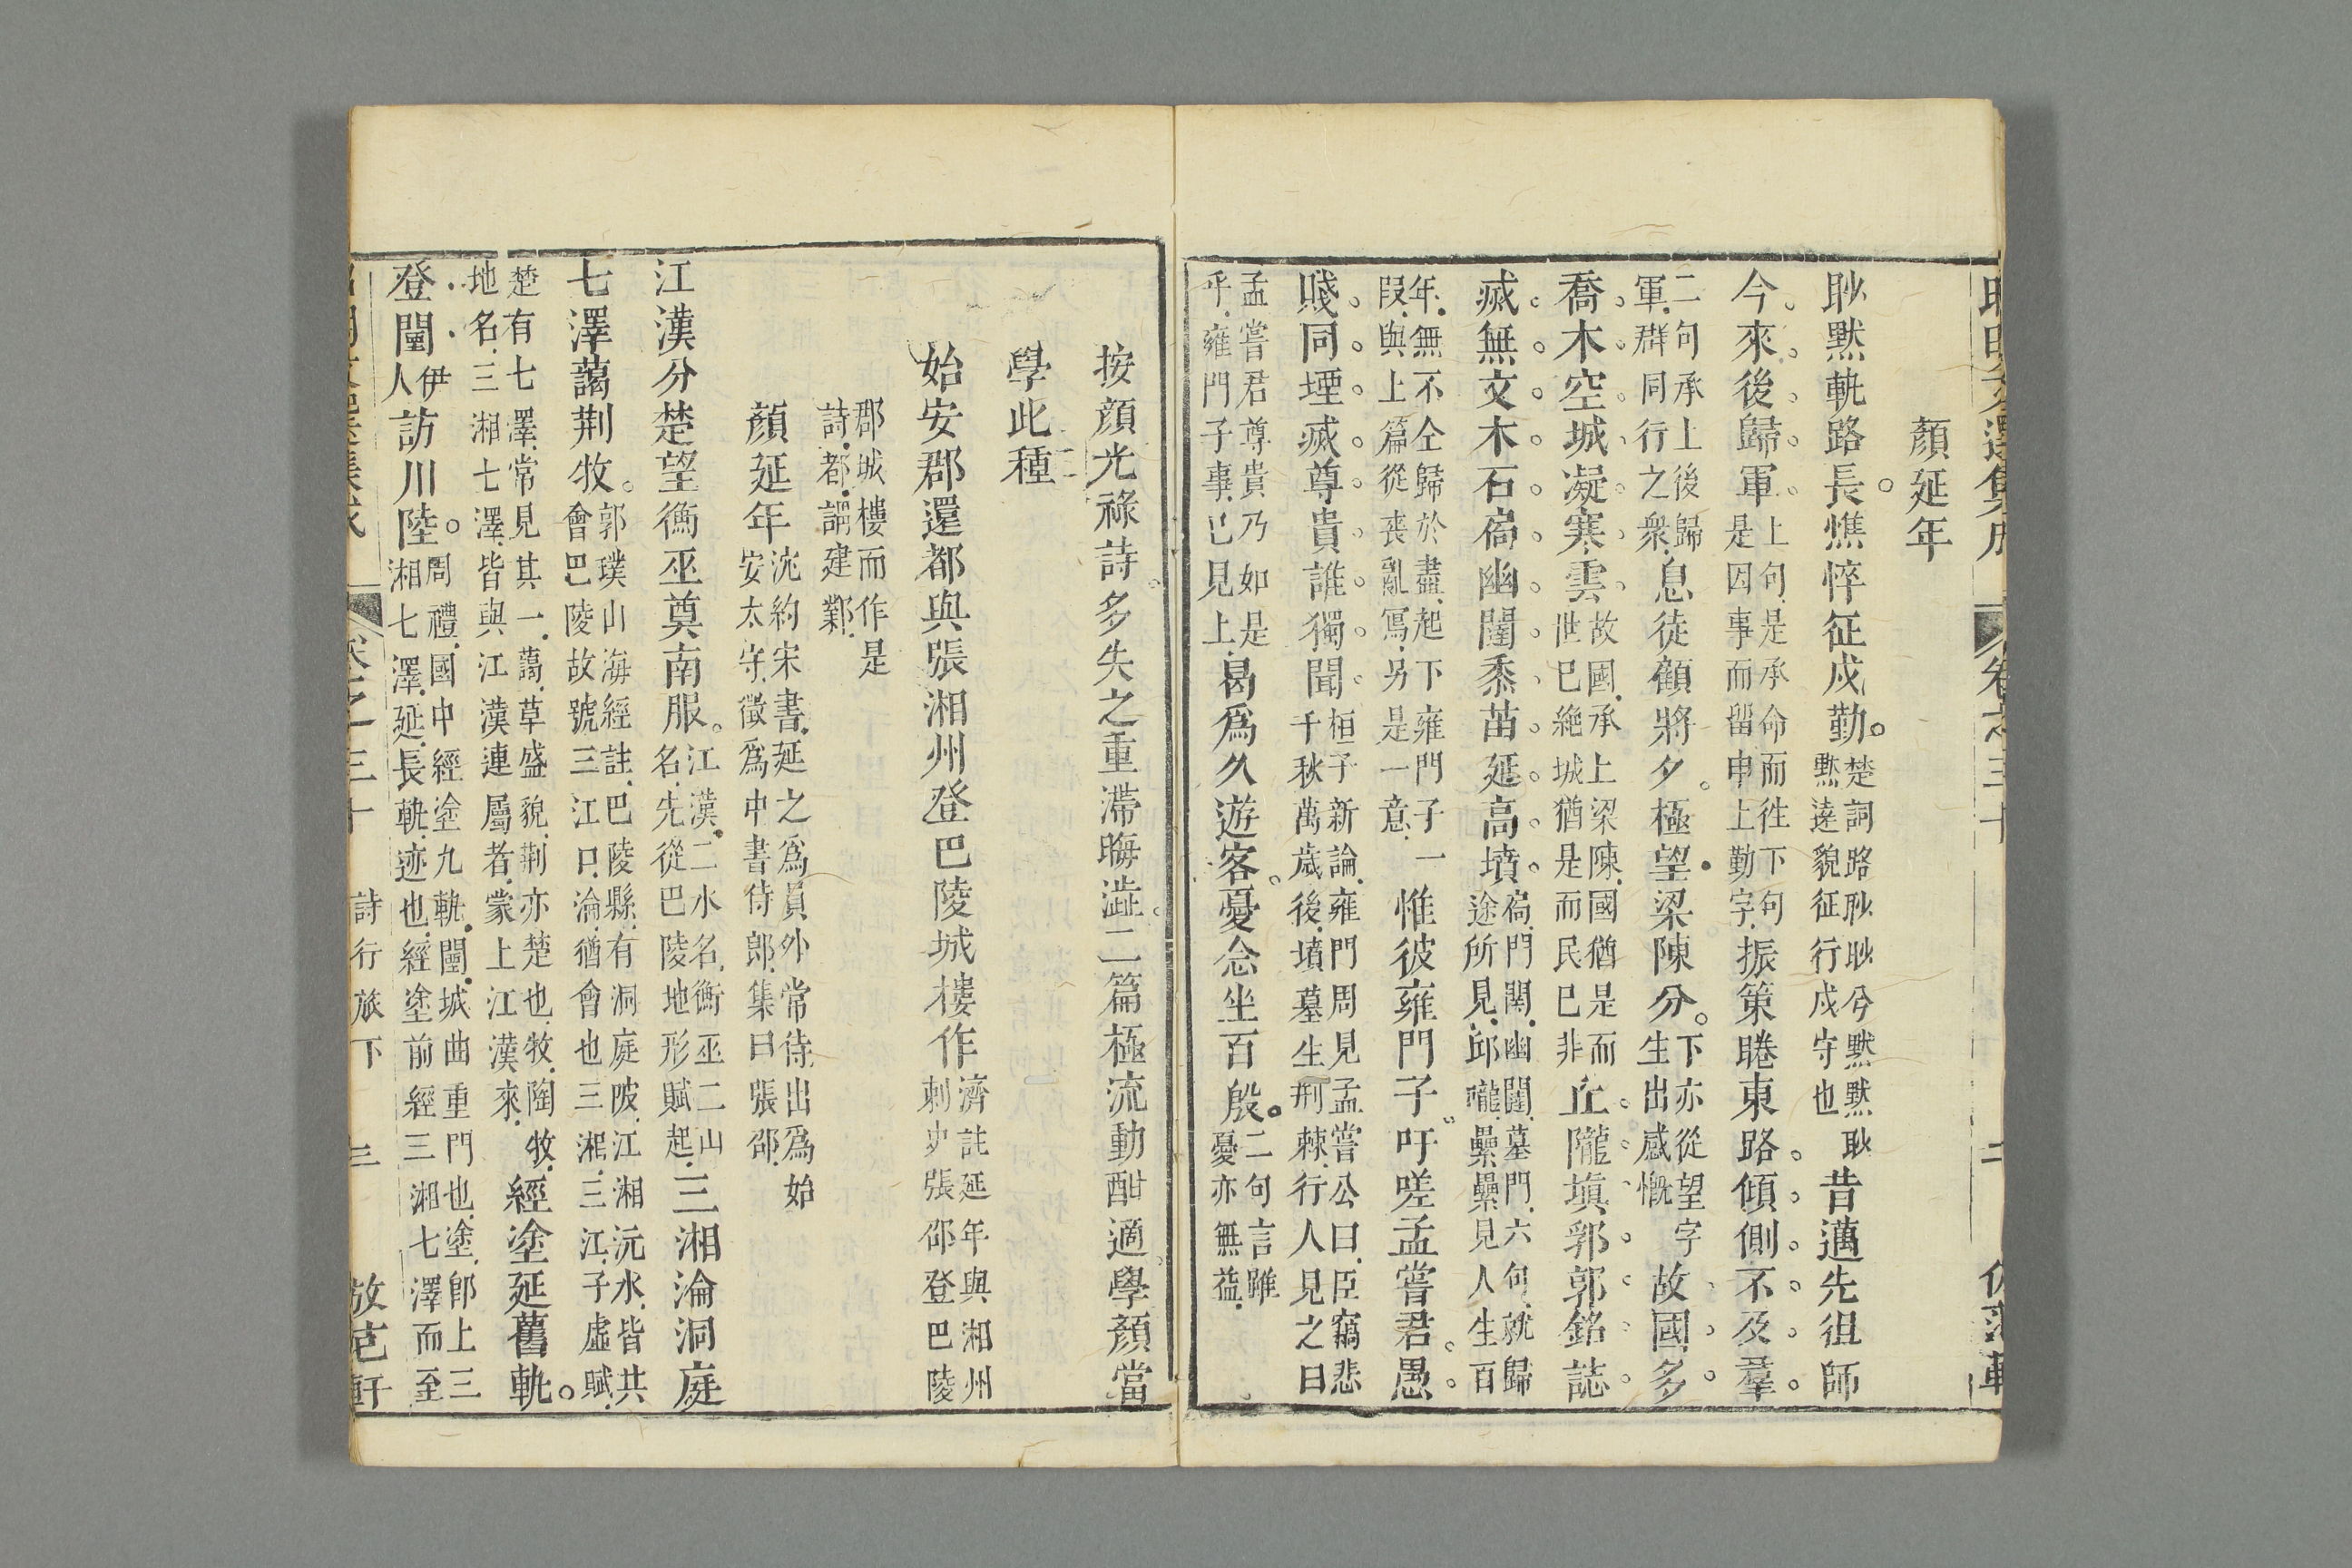 昭明文選集成 卷之三十 二
顏延年
眇黙軌路長憔悴征戍勤楚詞路眇眇兮黙黙眇黙逺貌征行戍守也昔邁先徂師
今來後歸軍上句是承命而徃下句是因事而畱申上勤字振策睠東路傾側不及羣
二句承上後歸軍群同行之衆息徒顧將夕極望梁陳分下亦從望字生出感慨故國多
喬木空城凝寒雲故國承上梁陳國猶是而世已絶城猶是而民已非丘隴填郛郭銘誌
滅無文木石扃幽闥黍苗延高墳扃門關幽闥墓門六句就歸途所見邱隴纍纍見人生百
年無不仝歸於盡起下雍門子一叚與上篇從丧亂寫另是一意惟彼雍門子吁嗟孟嘗君愚
賤同堙滅尊貴誰獨聞桓子新論雍門周見孟嘗公曰臣竊悲千秋萬歲後墳墓生荆棘行人見之曰
孟嘗君尊貴乃如是乎雍門子事已見上曷爲久遊客憂念坐百殷二句言雖憂亦無益
按顏光祿詩多失之重滯晦澁二篇極流動酣適學顏當
學此種
始安郡還都與張湘州登巴陵城樓作濟註延年與湘州刺史張邵登巴陵
郡城樓而作是詩都謂建鄴
顏延年沈約宋書延之爲員外常侍出爲始安太守徵爲中書侍郎集曰張邵
江漢分楚望衡巫奠南服江漢二水名衡巫二山名先從巴陵地形賦起三湘淪洞庭
七澤藹荆牧郭璞山海經註巴陵縣有洞庭陂江湘沅水皆共會巴陵故號三江口淪猶會也三湘三江子虛賦
楚有七澤常見其一藹草盛貌荆亦楚也牧陶牧地名三湘七澤皆與江漢連屬者蒙上江漢來經塗延舊軌
登闉伊人訪川陸周禮國中經塗九軌闉城曲重門也塗卽上三湘七澤延長軌迹也經塗前經三湘七澤而至
昭明文選集成 卷之三十 詩 行旅下 三 倣范軒